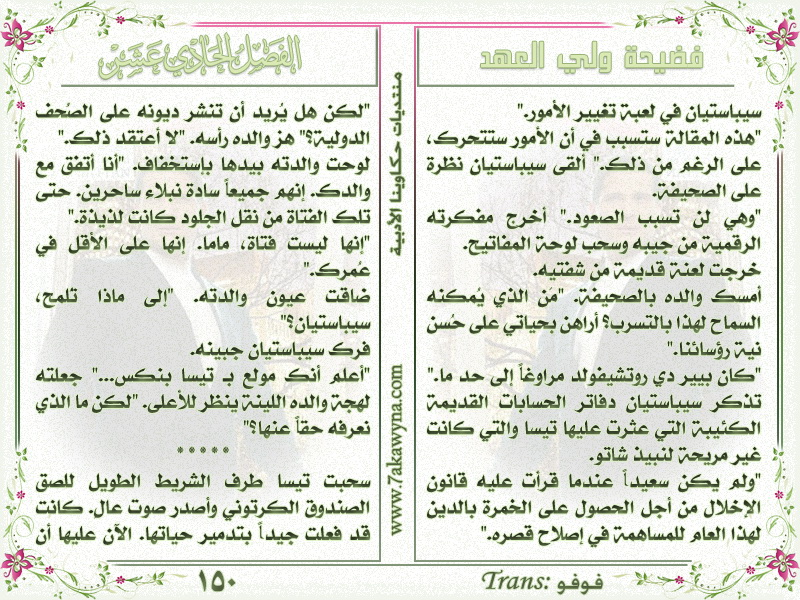 فضيحة ولي العهد
سيباستيان في لعبة تغيير الأمور."
"هذه المقالة ستسبب في أن الأمور ستتحرك،
على الرغم من ذلك." ألقى سيباستيان نظرة
على الصحيفة.
"وهي لن تسبب الصعود." أخرج مفكرته
الرقمية من جيبه وسحب لوحة المفاتيح.
خرجت لعنة قديمة من شفتيه.
أمسك والده بالصحيفة. "مَن الذي يُمكنه
السماح لهذا بالتسرب؟ أراهن بحياتي على حُسن
نية رؤسائنا."
"كان بيير دي روتشيفولد مراوغاً إلى حد ما."
تذكر سيباستيان دفاتر الحسابات القديمة
الكئيبة التي عثرت عليها تيسا والتي كانت
غير مريحة لنبيذ شاتو.
"ولم يكن سعيداً عندما قرأت عليه قانون
الإخلال من أجل الحصول على الخمرة بالدين
لهذا العام للمساهمة في إصلاح قصره."
Trans: فوفو
منتديات حكاوينا الأدبية
www.7akawyna.com
الفصل الحادي عشر
"لكن هل يُريد أن تنشر ديونه على الصُحف
الدولية؟" هز والده رأسه. "لا أعتقد ذلك."
لوحت والدته بيدها بإستخفاف. "أنا أتفق مع
والدك. إنهم جميعاً سادة نبلاء ساحرين. حتى
تلك الفتاة من نقل الجلود كانت لذيذة."
"إنها ليست فتاة، ماما. إنها على الأقل في
عُمرك."
ضاقت عيون والدته. "إلى ماذا تلمح،
سيباستيان؟"
فرك سيباستيان جبينه.
"أعلم أنك مولع بـ تيسا بنكس..." جعلته
لهجة والده اللينة ينظر للأعلى. "لكن ما الذي
نعرفه حقاً عنها؟"
*****
سحبت تيسا طرف الشريط الطويل للصق
الصندوق الكرتوني وأصدر صوت عال. كانت
قد فعلت جيداً بتدمير حياتها. الآن عليها أن
١٥٠